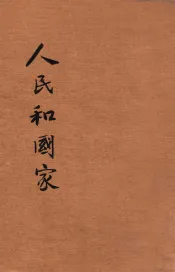 人民和國家